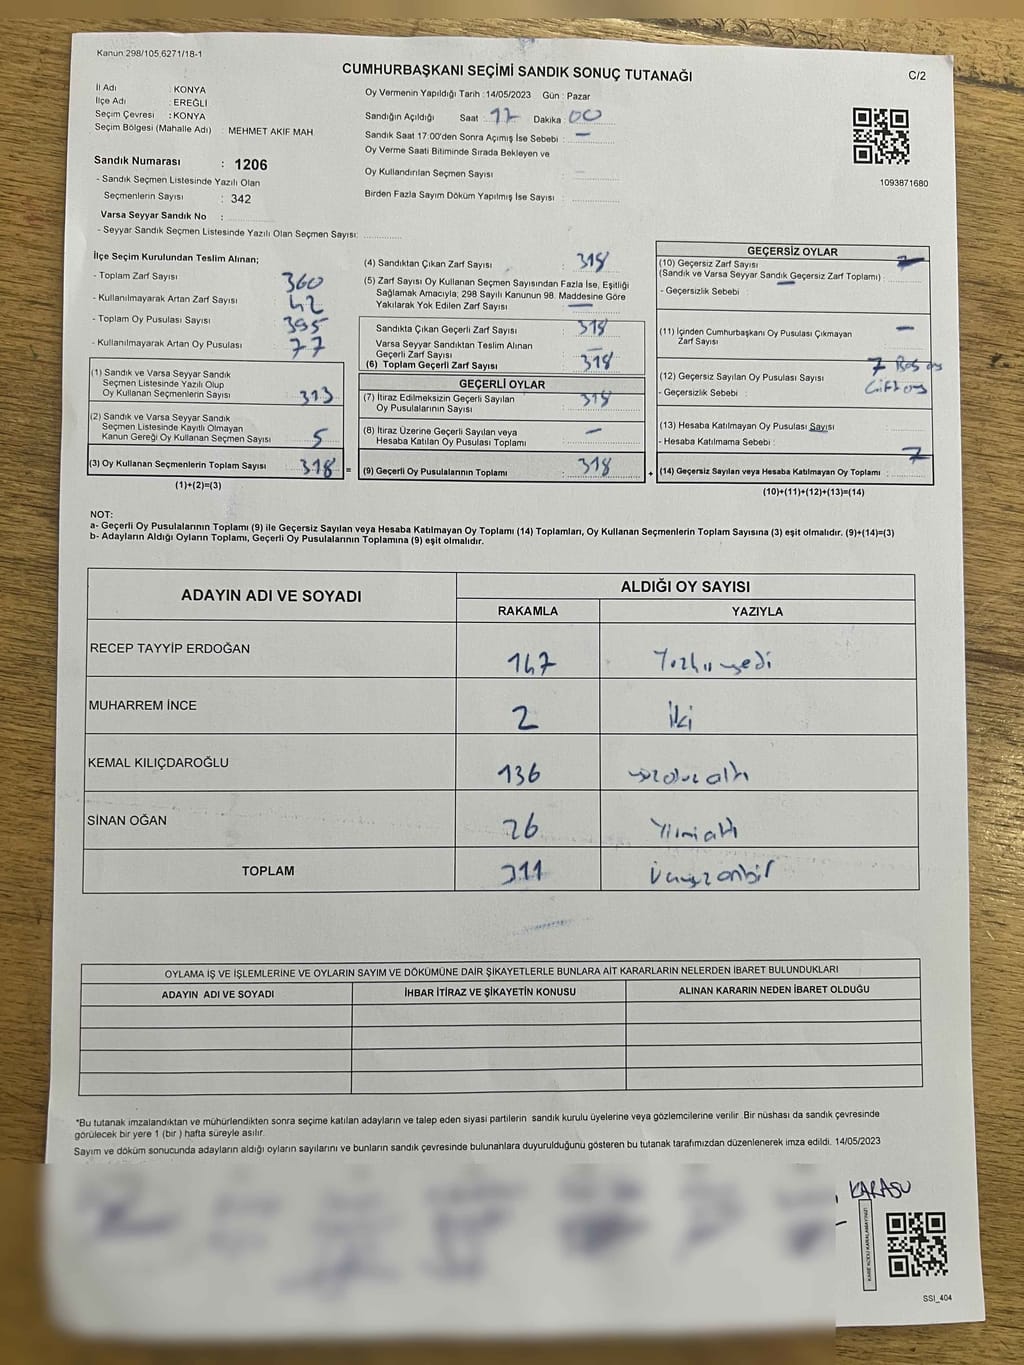 Kanun:298/105,6271/18-1
CUMHURBAŞKANI SEÇİMİ SANDIK SONUÇ TUTANAĞI
C/2
İl Adı : KONYA
İlçe Adı : EREĞLİ
Seçim Çevresi : KONYA
Seçim Bölgesi (Mahalle Adı) : MEHMET AKIF MAH
Sandık Numarası : 1206
- Sandık Seçmen Listesinde Yazılı Olan
Seçmenlerin Sayısı : 342
Varsa Seyyar Sandık No :
- Seyyar Sandık Seçmen Listesinde Yazılı Olan Seçmen Sayısı:
Oy Vermenin Yapıldığı Tarih :14/05/2023 Gün : Pazar
Sandığın Açıldığı Saat : 17 Dakika : 00
Sandık Saat 17:00'den Sonra Açımış İse Sebebi : —
Oy Verme Saati Bitiminde Sırada Bekleyen ve
Oy Kullandırılan Seçmen Sayısı : —
Birden Fazla Sayım Döküm Yapılmış İse Sayısı :
1093871680
İlçe Seçim Kurulundan Teslim Alınan;
- Toplam Zarf Sayısı 360
- Kullanılmayarak Artan Zarf Sayısı 42
- Toplam Oy Pusulası Sayısı 395
- Kullanılmayarak Artan Oy Pusulası 77
(1) Sandık ve Varsa Seyyar Sandık
Seçmen Listesinde Yazılı Olup
Oy Kullanan Seçmenlerin Sayısı : 313
(2) Sandık ve Varsa Seyyar Sandık
Seçmen Listesinde Kayıtlı Olmayan
Kanun Gereği Oy Kullanan Seçmen Sayısı : 5
(3) Oy Kullanan Seçmenlerin Toplam Sayısı : 318 =
(1)+(2)=(3)
(4) Sandıktan Çıkan Zarf Sayısı : 318
(5) Zarf Sayısı Oy Kullanan Seçmen Sayısından Fazla İse, Eşitliği
Sağlamak Amacıyla; 298 Sayılı Kanunun 98. Maddesine Göre
Yakılarak Yok Edilen Zarf Sayısı : —
Sandıkta Çıkan Geçerli Zarf Sayısı : 318
Varsa Seyyar Sandıktan Teslim Alınan
Geçerli Zarf Sayısı : —
(6) Toplam Geçerli Zarf Sayısı : 318
GEÇERLİ OYLAR
(7) İtiraz Edilmeksizin Geçerli Sayılan
Oy Pusulalarının Sayısı : 318
(8) İtiraz Üzerine Geçerli Sayılan veya
Hesaba Katılan Oy Pusulası Toplamı : —
(9) Geçerli Oy Pusulalarının Toplamı : 318 +
GEÇERSİZ OYLAR
(10) Geçersiz Zarf Sayısı
(Sandık ve Varsa Seyyar Sandık Geçersiz Zarf Toplamı) :
- Geçersizlik Sebebi : —
(11) İçinden Cumhurbaşkanı Oy Pusulası Çıkmayan
Zarf Sayısı : —
(12) Geçersiz Sayılan Oy Pusulası Sayısı : 7 Boş oy
- Geçersizlik Sebebi : Çift oy
(13) Hesaba Katılmayan Oy Pusulası Sayısı :
- Hesaba Katılmama Sebebi :
(14) Geçersiz Sayılan veya Hesaba Katılmayan Oy Toplamı : 7
(10)+(11)+(12)+(13)=(14)
NOT:
a- Geçerli Oy Pusulalarının Toplamı (9) ile Geçersiz Sayılan veya Hesaba Katılmayan Oy Toplamı (14) Toplamları, Oy Kullanan Seçmenlerin Toplam Sayısına (3) eşit olmalıdır. (9)+(14)=(3)
b- Adayların Aldığı Oyların Toplamı, Geçerli Oy Pusulalarının Toplamına (9) eşit olmalıdır.
ADAYIN ADI VE SOYADI ALDIĞI OY SAYISI
RAKAMLA YAZIYLA
RECEP TAYYİP ERDOĞAN 147
MUHARREM İNCE 2 İki
KEMAL KILIÇDAROĞLU 136 yüzotuzaltı
SİNAN OĞAN 26 Yirmialtı
TOPLAM 311 Üçyüzonbir
OYLAMA İŞ VE İŞLEMLERİNE VE OYLARIN SAYIM VE DÖKÜMÜNE DAİR ŞİKAYETLERLE BUNLARA AİT KARARLARIN NELERDEN İBARET BULUNDUKLARI
ADAYIN ADI VE SOYADI İHBAR İTİRAZ VE ŞİKAYETİN KONUSU ALINAN KARARIN NEDEN İBARET OLDUĞU
*Bu tutanak imzalandıktan ve mühürlendikten sonra seçime katılan adayların ve talep eden siyasi partilerin sandık kurulu üyelerine veya gözlemcilerine verilir .Bir nüshası da sandık çevresinde
görülecek bir yere 1 (bir ) hafta süreyle asılır.
Sayım ve döküm sonucunda adayların aldığı oyların sayılarını ve bunların sandık çevresinde bulunanlara duyurulduğunu gösteren bu tutanak tarafımızdan düzenlenerek imza edildi. 14/05/2023
KARASU
SSI_404